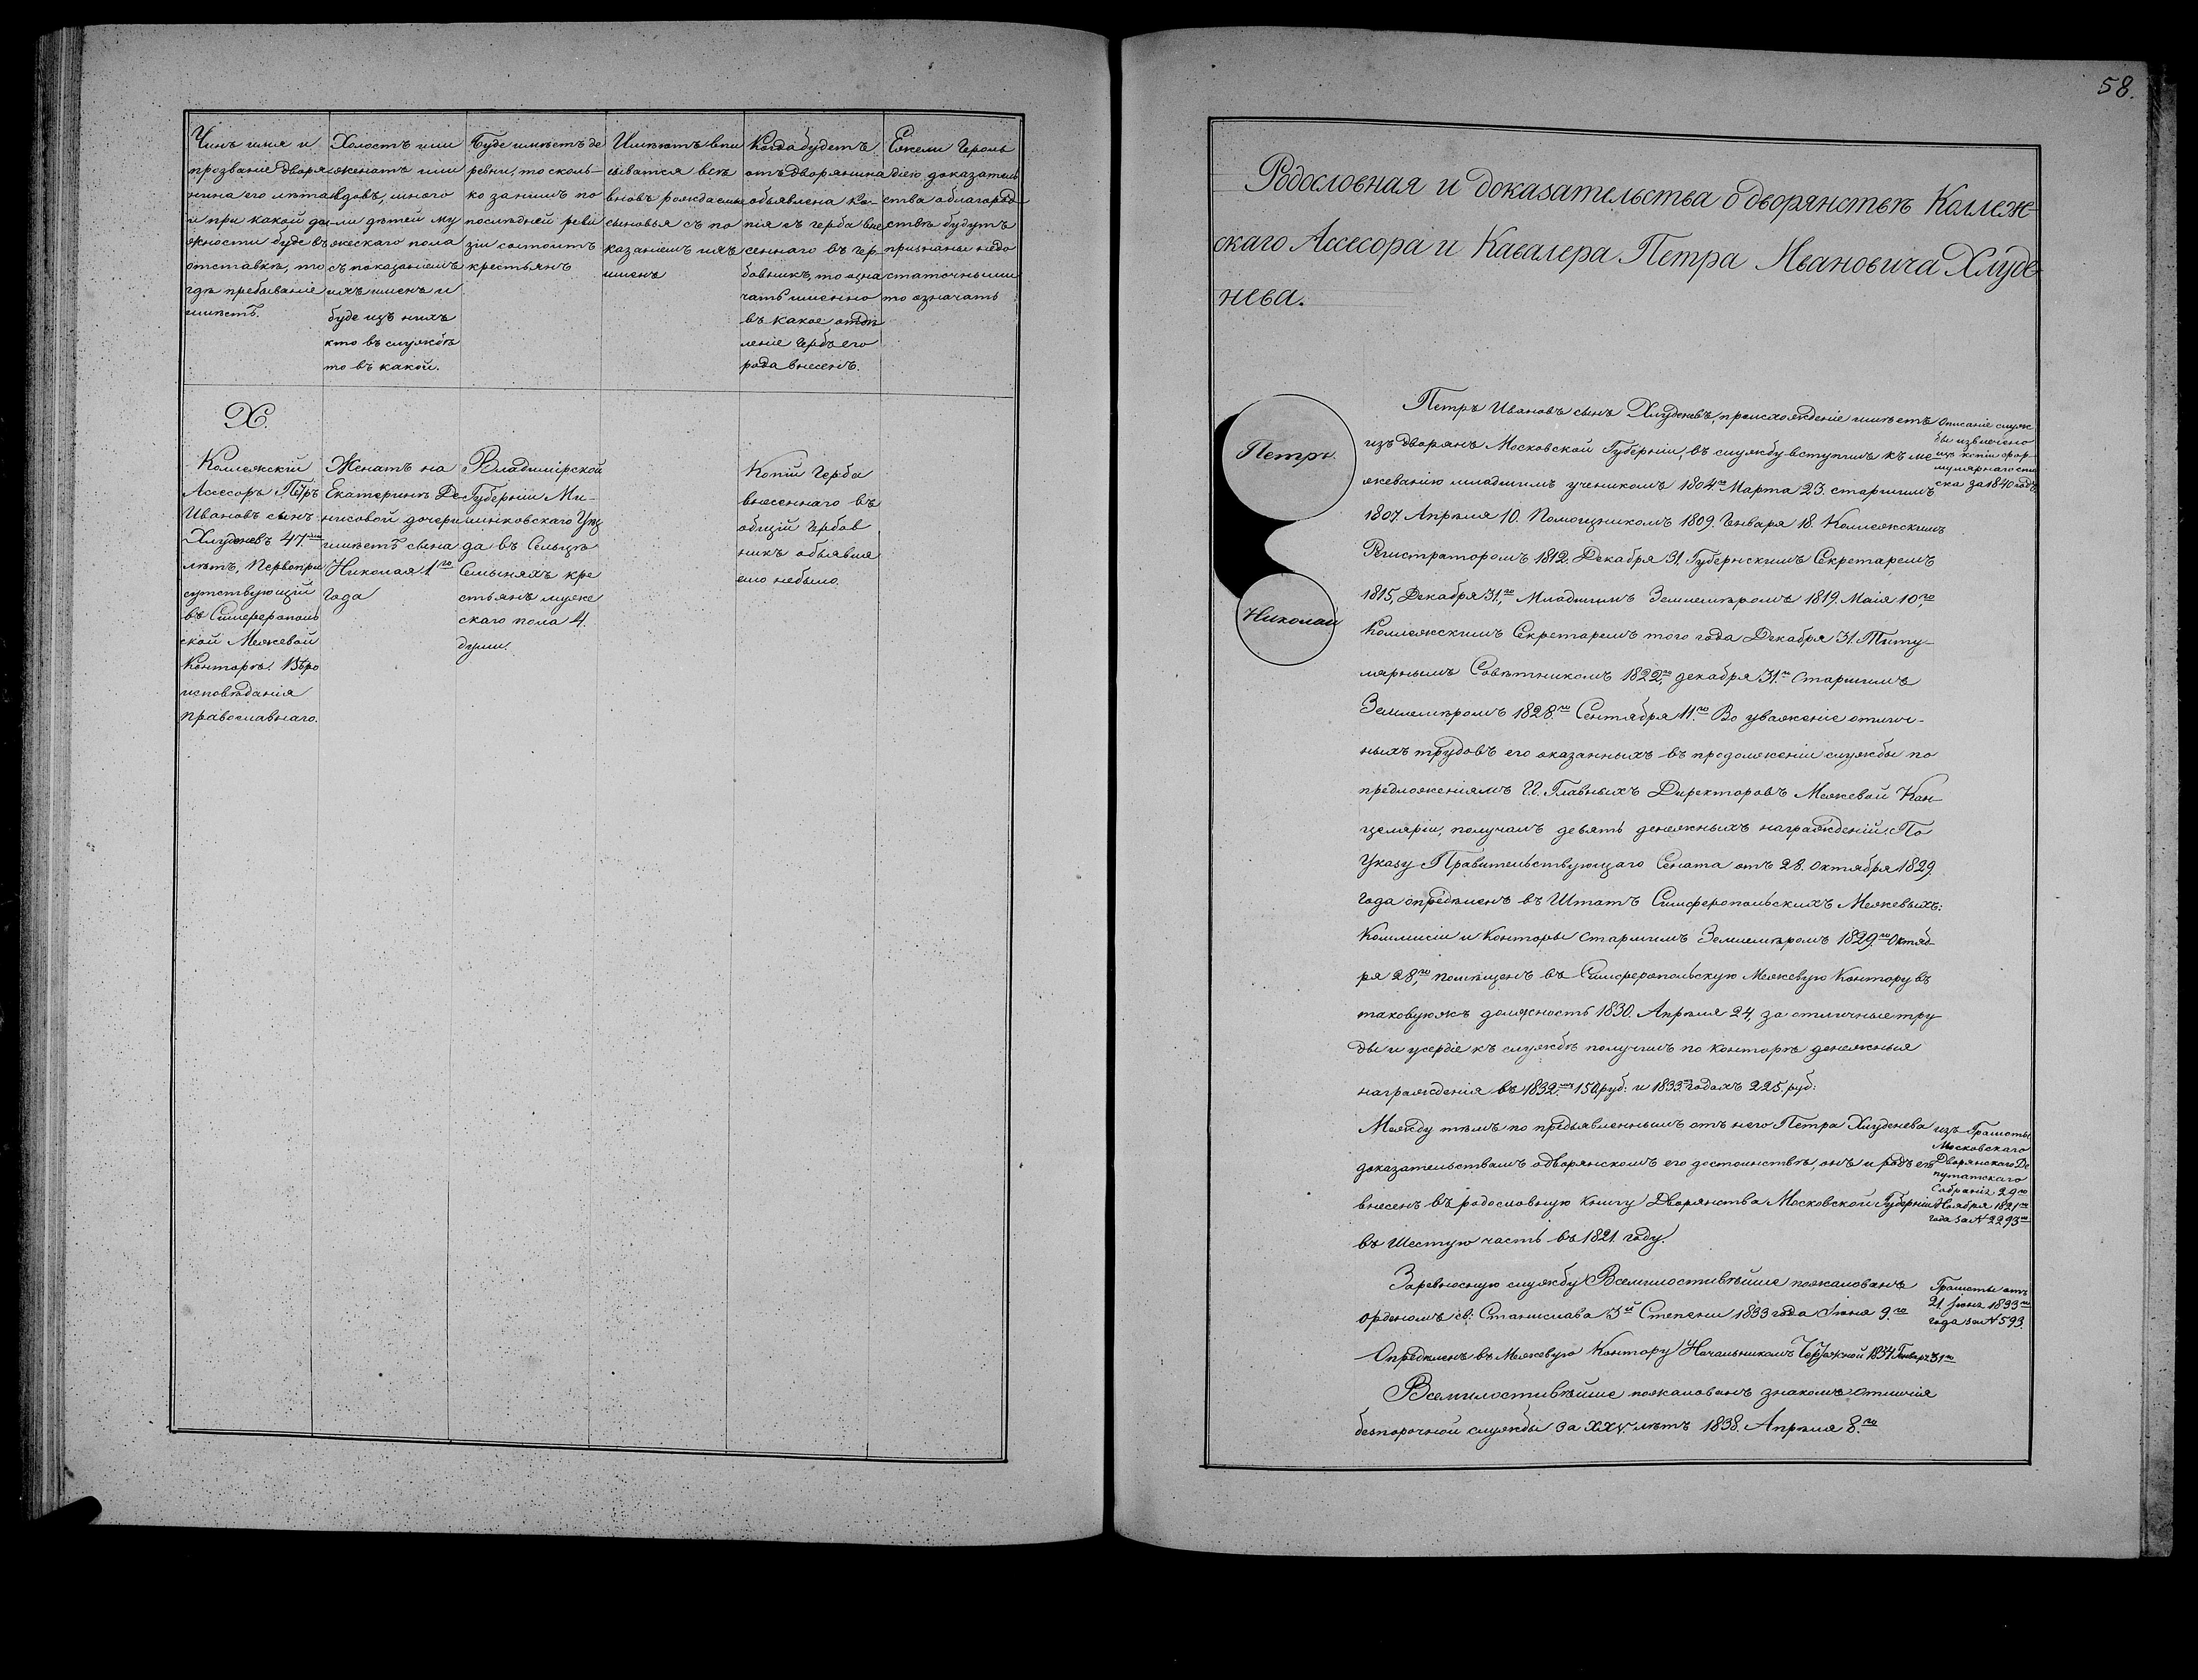 Чинъ имя и
прозваніе дворя
нина его лѣта
и при какой до
жности буде въ
отставкѣ, то
гдѣ пребываніе
имѣетъ.
Холостъ или
женатъ или
вдовъ, много
ли дѣтей му
жескаго пола
съ показаніемъ
ихъ именъ и
буде изъ нихъ
кто въ службѣ
то въ какой.
Буде имѣетъ де
ревни, то сколь-
ко за нимъ по
послѣдней реви
зіи состоитъ
крестьянъ
Имѣютъ впи
сыватся всѣ
вновь рождаемые
сыновья съ по
казаніемъ ихъ
именъ
Когда будетъ
отъ дворянина
объявлена ко-
пія съ герба вне
сеннаго въ гер-
бовникъ, то озна
чать именно
въ какое отдѣ
леніе гербъ его
рода внесенъ.
Ежели Героль
діею доказатель
ства облагород
ствѣ будутъ
признаны недо
статочными
то означать
Х.
Коллежскій
Асесоръ Петръ
Ивановъ сынъ
Хлуденевъ 47.ми
лѣтъ, Первопри
сутствующій
въ Симферополь
ской Межевой
Конторѣ. Вѣро
исповѣданія
православнаго.
Женатъ на
Екатеринѣ Де
нисовой дочери
имѣетъ сына
Николая 1.го
года
Владимірской
Губерніи Ми-
линковскаго Уѣз
да въ Сельцѣ
Семыняхъ кре
стьянъ муже
скаго пола 4.
души.
Копій Герба
внесеннаго въ
общій Гербов
никъ объявля
емо небыло.
58.
Родословная и доказательства одворянствѣ Коллеж-
скаго Ассесора и Кавалера Петра Ивановича Хлуде-
нева.
Петръ
Николай
Петръ Ивановъ сынъ Хлуденевъ, происхожденіе имѣетъ
изъ дворянъ Московской Губерніи, въ службу вступилъ къ ме-
жеванію младшимъ ученикомъ 1804.го Марта 23. старшимъ
1807. Апрѣля 10. Помощникомъ 1809. Генваря 18. Коллежскимъ
Регистраторомъ 1812. Декабря 31. Губернскимъ Секретаремъ
1815, Декабря 31.го, Младшимъ Землемѣромъ 1819. Маія 10,го
Коллежскимъ Секретаремъ того года Декабря 31. Титу-
лярнымъ Совѣтникомъ 1822,го декабря 31.го Старшимъ
Землемѣромъ 1828.го Сентября 11.го Во уваженіе отлич-
ныхъ трудовъ его оказанныхъ въ продолженіи службы по
предложеніямъ Г.Г. Главныхъ Директоровъ Межевой Кан-
целяріи, получалъ девять денежныхъ награжденій. По
Указу Правительствующаго Сената отъ 28. Октября 1829.
года опредѣленъ въ Штатъ Симферопольскихъ Межевыхъ:
Коммисіи и Конторы старшимъ Землемѣромъ 1829.го Октяб-
ря 28,го помѣщенъ въ Симферопольскую Межевую Контору въ
таковуюжъ должность 1830. Апрѣля 24, за отличные тру-
ды и усердіе къ службѣ получилъ по конторѣ денежныя
награжденія въ 1832.мъ 150 руб: и 1833.мъ годахъ 225. руб:
Описаніе служ
бы извлечено
изъ копіи фор-
мулярнаго спи
ска за 1840 годъ
Между тѣмъ по предъявленнымъ отъ него Петра Хлуденева
доказательствамъ одворянскомъ его достоинствѣ, онъ и родъ его
внесенъ въ родословную книгу Дворянства Московской Губерніи
въ Шестую часть въ 1821 году.
изъ Грамоты
Московскаго
Дворянскаго Де
путатскаго
Собранія 29го
Ноября 1821го
года за № 2293м
Заревносную службу Всемилостивѣйше пожалованъ
орденомъ св: Станислава 3й Степени 1833 года Іюня 9.го
Грамоты отъ
21 Іюня 1833го
года за № 593.
Опредѣленъ въ Межевую Контору Начальникомъ Чертежной 1834 Генваря 31го
Всемилостивѣйше пожалованъ знакомъ отличія
безпорочной службы за XXV. лѣтъ 1838. Апрѣля 8.го